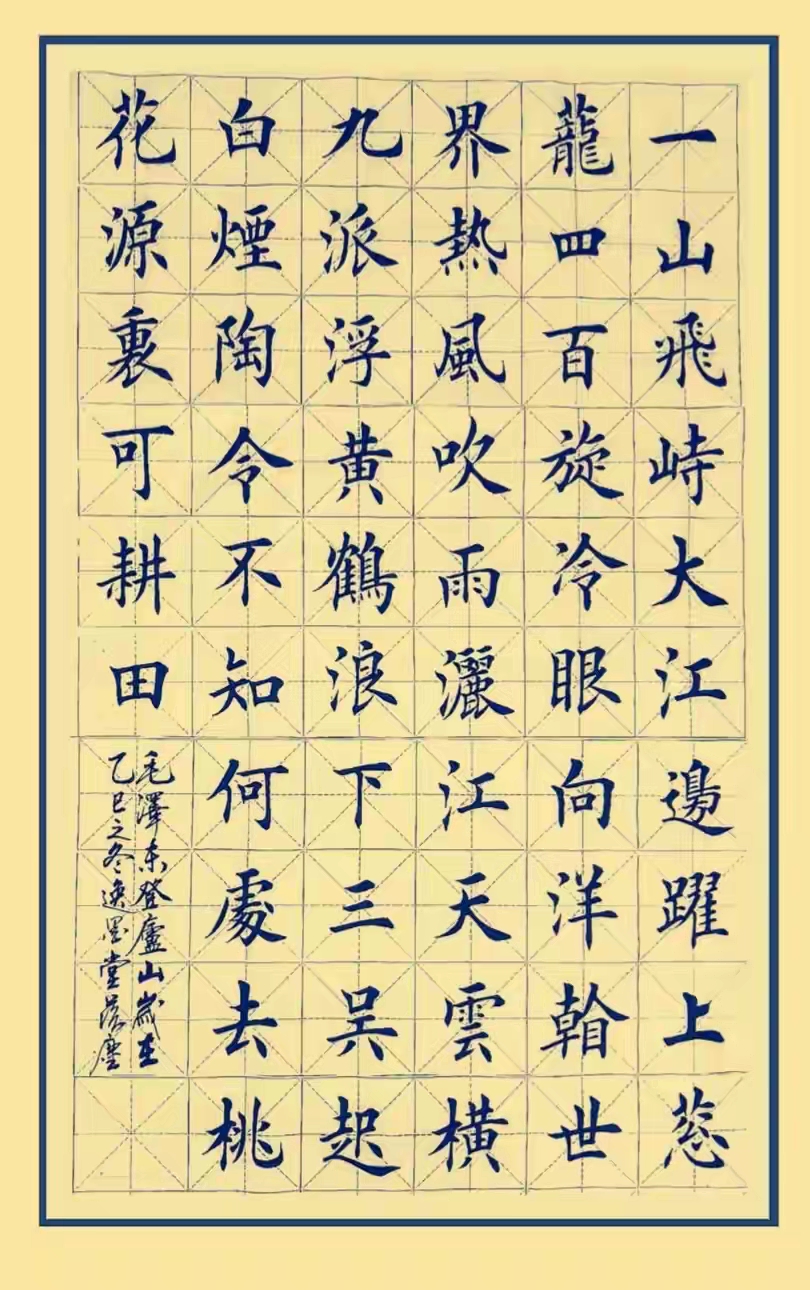 一山飛峙大江邊躍上葱
蘢四百旋冷眼向洋看世
界熱風吹雨灑江天雲横
九派浮黄鶴浪下三吴起
白煙陶令不知何處去桃
花源裏可耕田
毛澤东登廬山歲在
乙巳之冬逸墨堂落塵